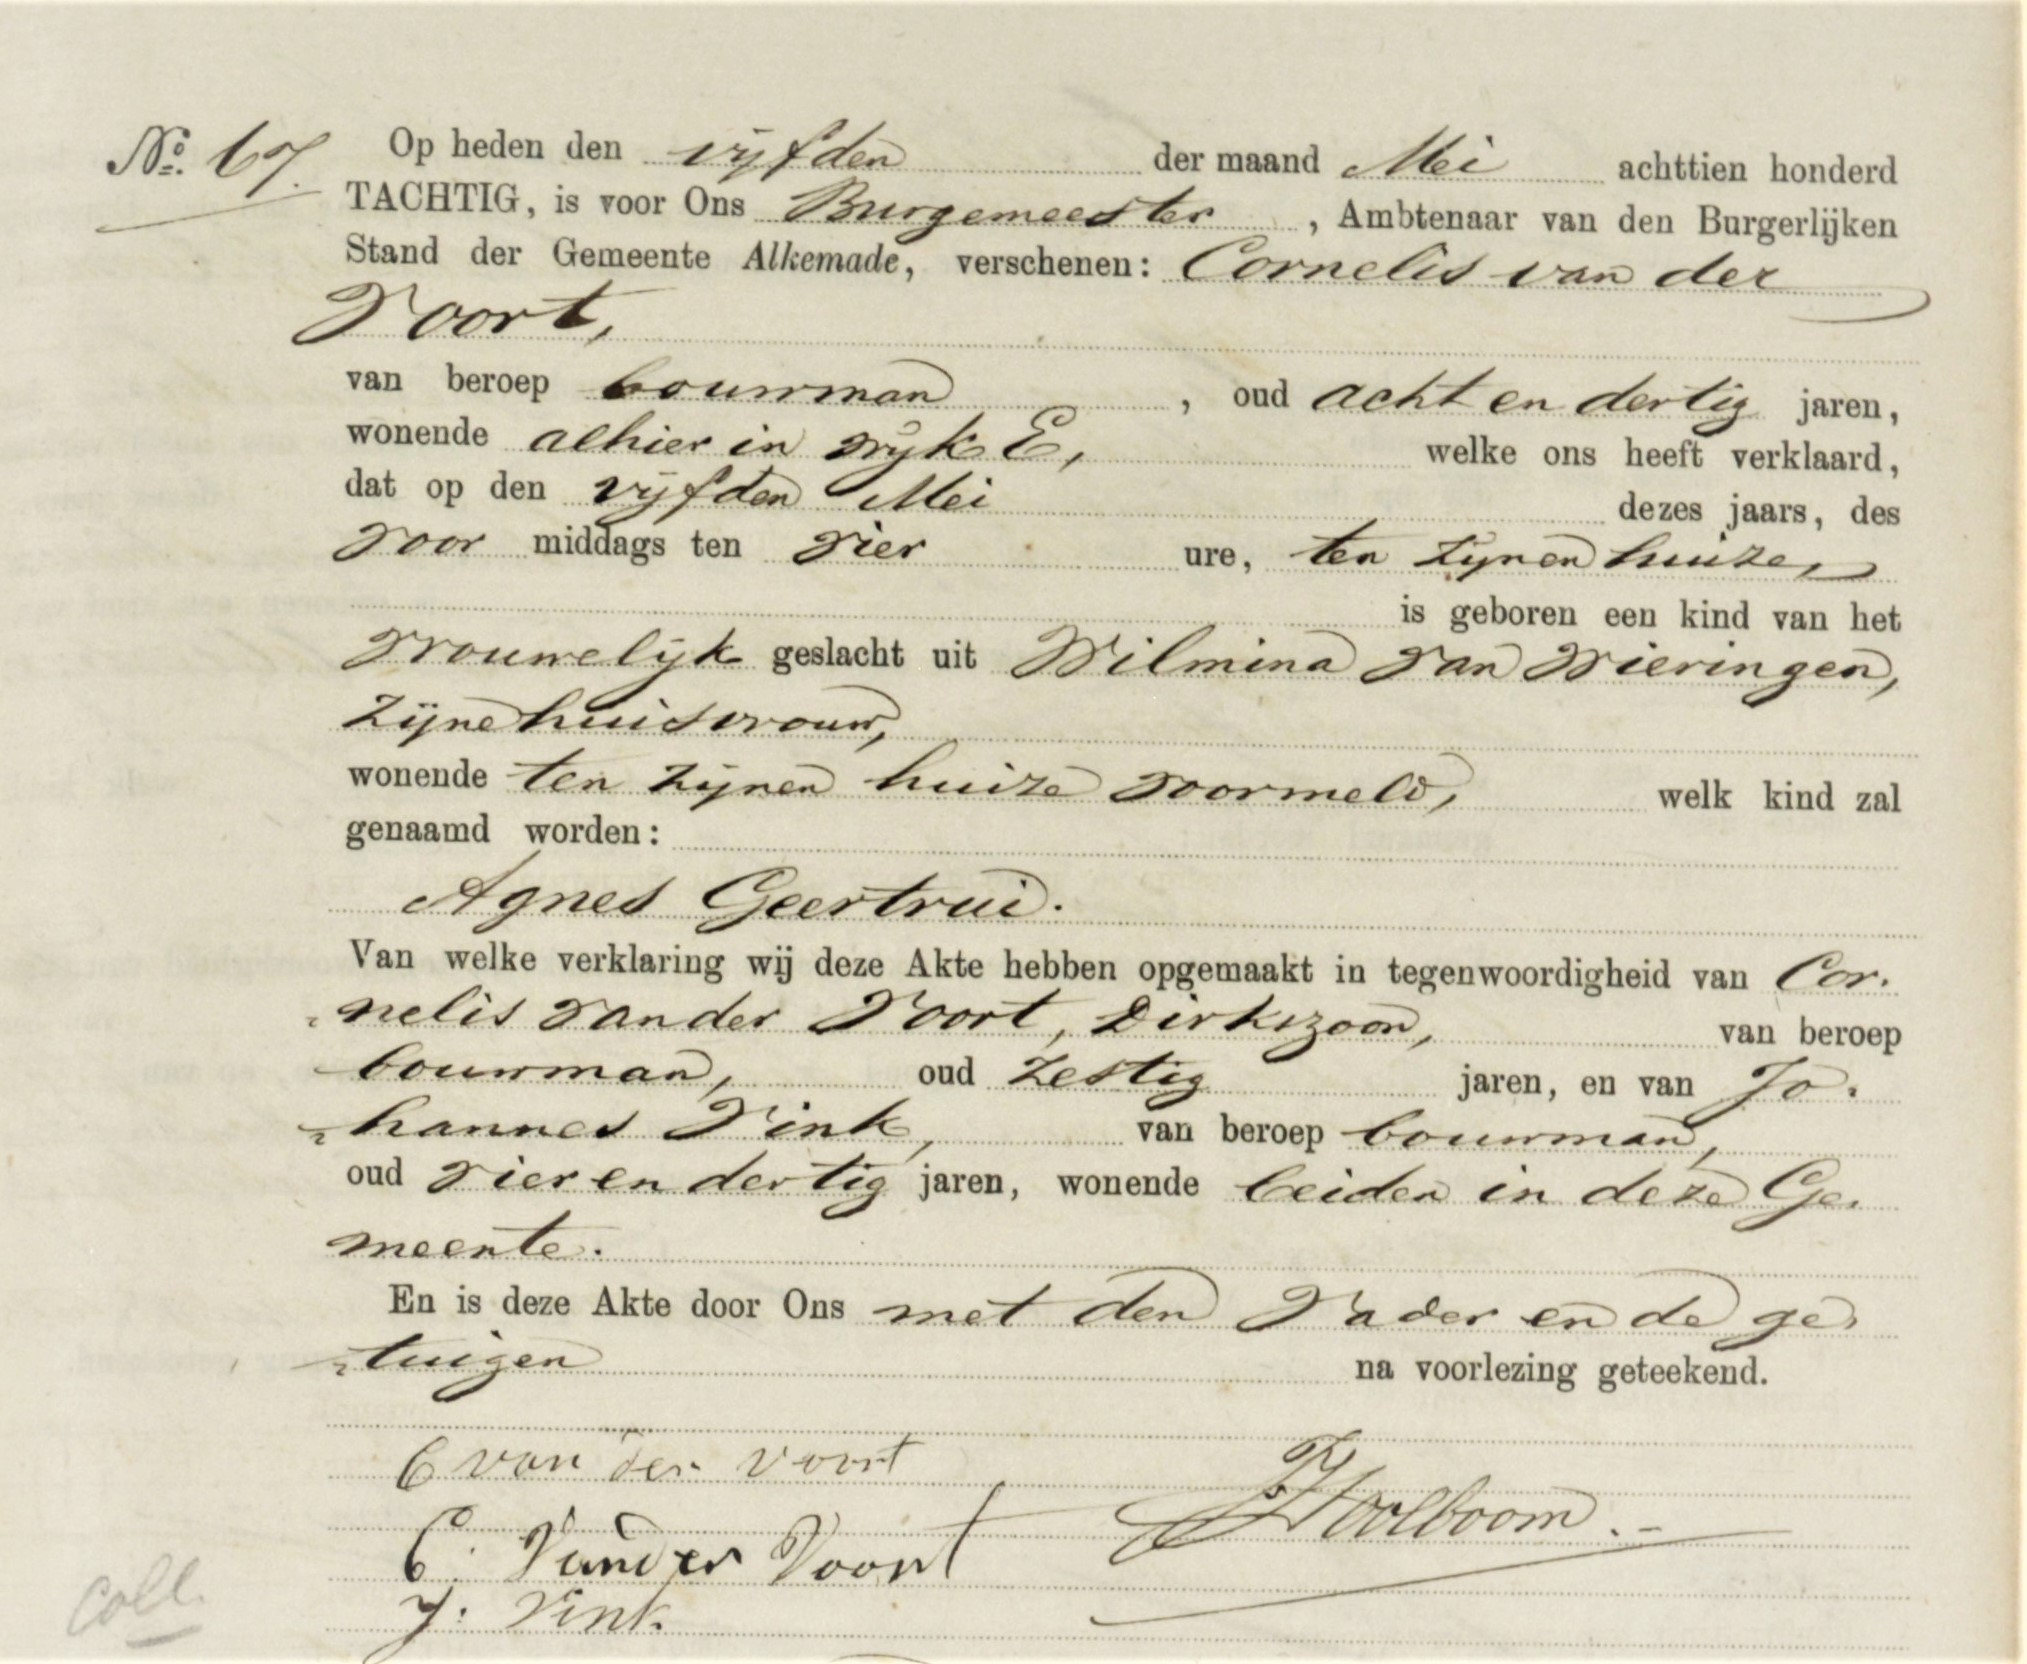 No. 67.
Op heden den vijfden der maand Mei achttien honderd
TACHTIG, is voor Ons Burgemeester, Ambtenaar van den Burgerlijken
Stand der Gemeente Alkemade, verschenen: Cornelis van der
Voort,
van beroep bouwman, oud acht en dertig jaren,
wonende alhier in wijk E, welke ons heeft verklaard,
dat op den vijfden Mei dezes jaars, des
voor middags ten vier ure, ten zijnen huize,
is geboren een kind van het
vrouwelijk geslacht uit Wilmina van Wieringen,
zijne huisvrouw,
wonende ten zijnen huize voormeld, welk kind zal
genaamd worden:
Agnes Geertrui.
Van welke verklaring wij deze Akte hebben opgemaakt in tegenwoordigheid van Cor-
nelis van der Voort, Dirkszoon, van beroep
bouwman, oud zestig jaren, en van Jo-
hannes Vink, van beroep bouwman,
oud vier en dertig jaren, wonende beiden in deze Ge-
meente.
En is deze Akte door Ons met den Vader en de ge-
tuigen na voorlezing geteekend.
C van der Voort
C. Vander Voort
J. Vink.
Coll.